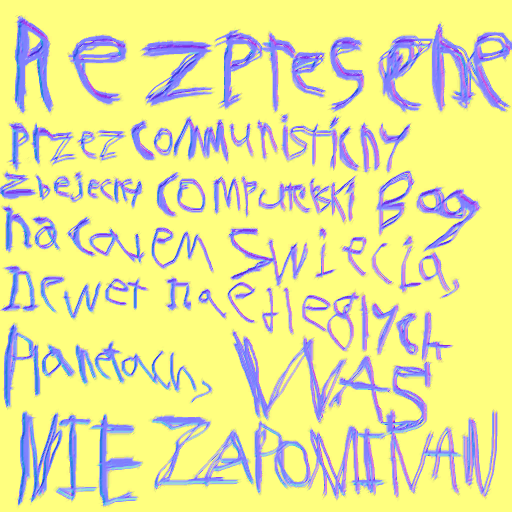 Rezpresene
przez communisticny
zbejecny computerski Bog
na calem swiecia,
Dewet na edleglych
Planetach, WAS
NIE ZAPOMINAM